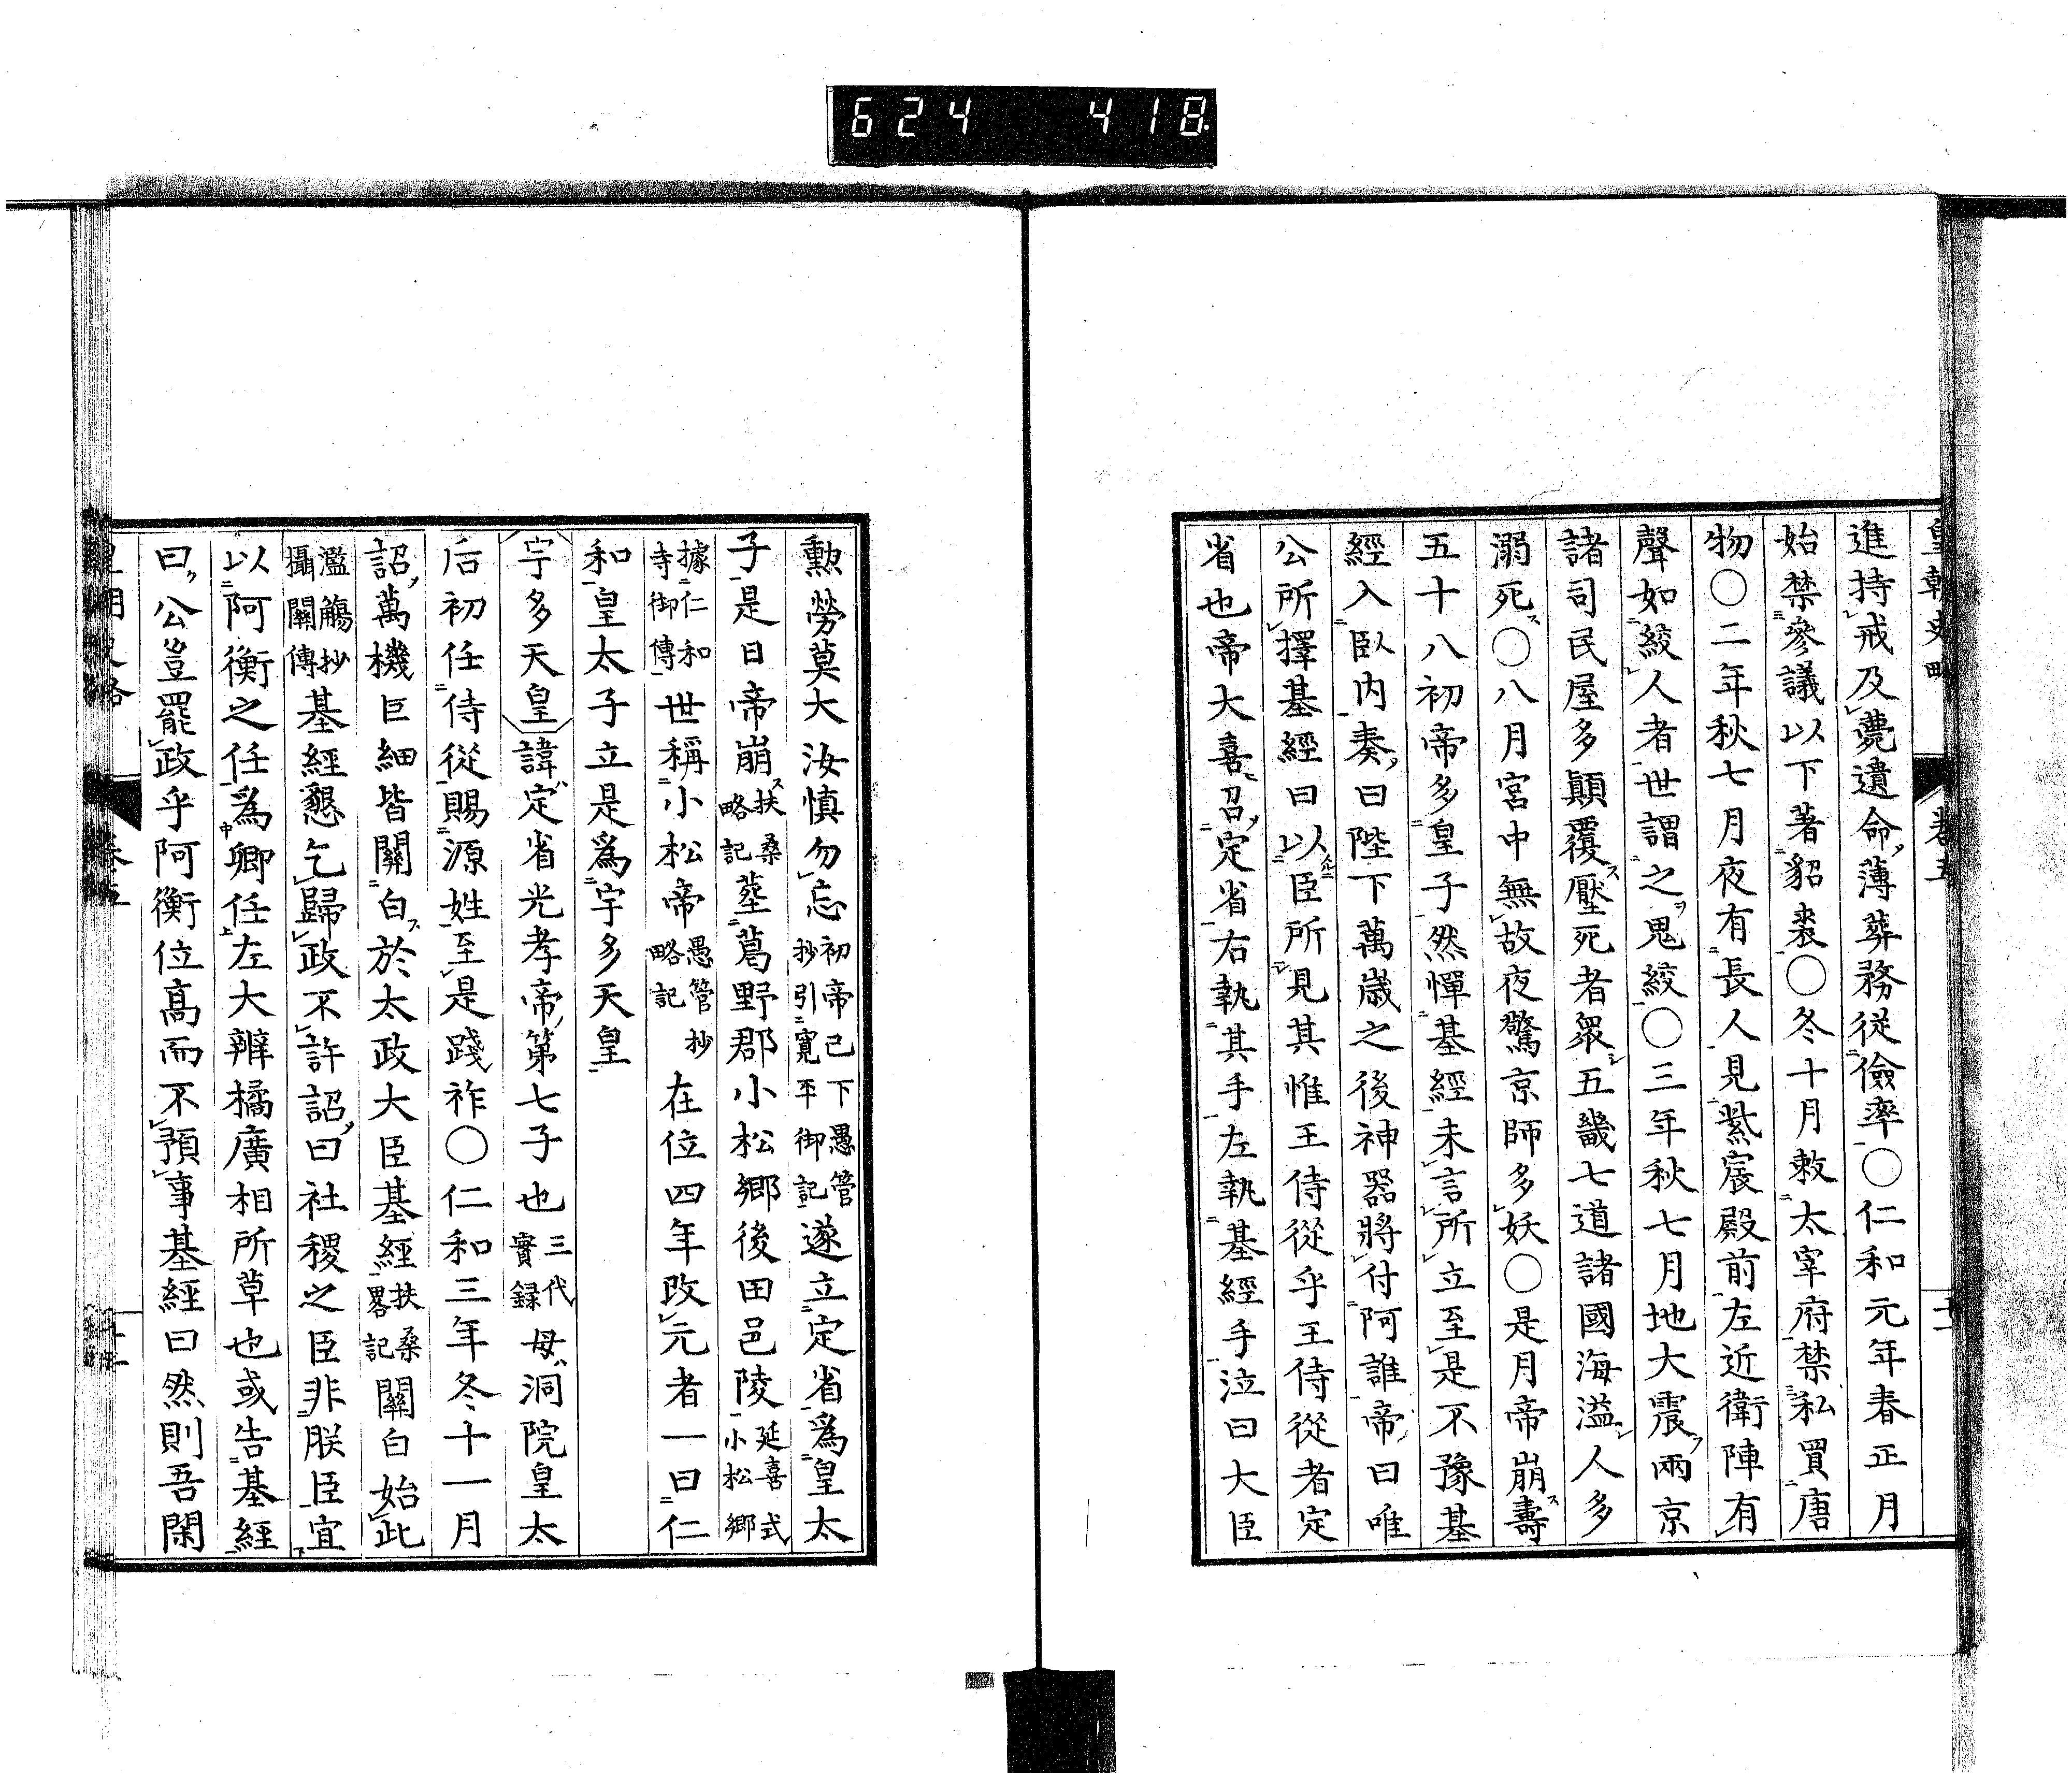 624 418
皇朝史略 卷五
進持戒及薨遺命薄葬務從儉率〇仁和元年春正月
始禁參議以下著貂裘〇冬十月敕太宰府禁私買唐
物〇二年秋七月夜有長人見紫宸殿前左近衛陣有
聲如絞人者世謂之鬼絞〇三年秋七月地大震兩京
諸司民屋多顛覆壓死者眾五畿七道諸國海溢人多
溺死〇八月宮中無故夜驚京師多妖〇是月帝崩壽
五十八初帝多皇子然憚基經未言所立至是不豫基
經入臥內奏曰陛下萬歲之後神器將付阿誰帝曰唯
公所擇基經曰以臣所見其惟王侍從乎王侍從者定
省也帝大喜召定省右執其手左執基經手泣曰大臣
勲勞莫大汝慎勿忘初帝已下愚管抄引寬平御記遂立定省爲皇太
子是日帝崩扶桑略記葬葛野郡小松鄉後田邑陵延喜式小松鄉
據仁和寺御傳世稱小松帝愚管抄略記在位四年改元者一曰仁
和皇太子立是爲宇多天皇
宇多天皇諱定省光孝帝第七子也三代實録母洞院皇太
后初任侍從賜源姓至是踐祚〇仁和三年冬十一月
詔萬機巨細皆關白於太政大臣基經扶桑畧記關白始此
濫觴抄攝關傳基經懇乞歸政不許詔曰社稷之臣非朕臣宜
以阿衡之任爲卿任左大辨橘廣相所草也或告基經
曰公豈罷政乎阿衡位高而不預事基經曰然則吾閑